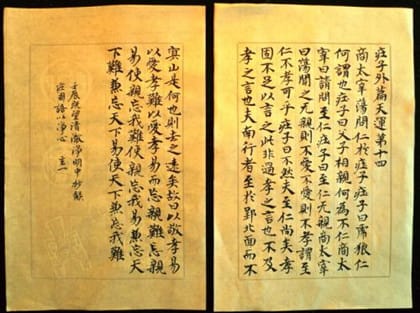 莊子外篇天運第十四
商太宰蕩問仁於莊子莊子曰虎狼仁
何謂也莊子曰父子相親何為不仁商太
宰曰請問至仁莊子曰至仁无親商太宰
曰蕩聞之无親則不愛不愛則不孝謂至
仁不孝可乎莊子曰不然夫至仁尚矣孝
固不足以言之此非過孝之言也不及
孝之言也夫南行者至於郢北面而不
冥山是何也則去之遠矣故曰以敬孝易
以愛孝難以愛孝易而忘親難忘親
易使親忘我難使親忘我易兼忘天
下難兼忘天下易使天下兼忘我難
壬辰既望清澈淨明中抄錄
莊周語以淨心 言一